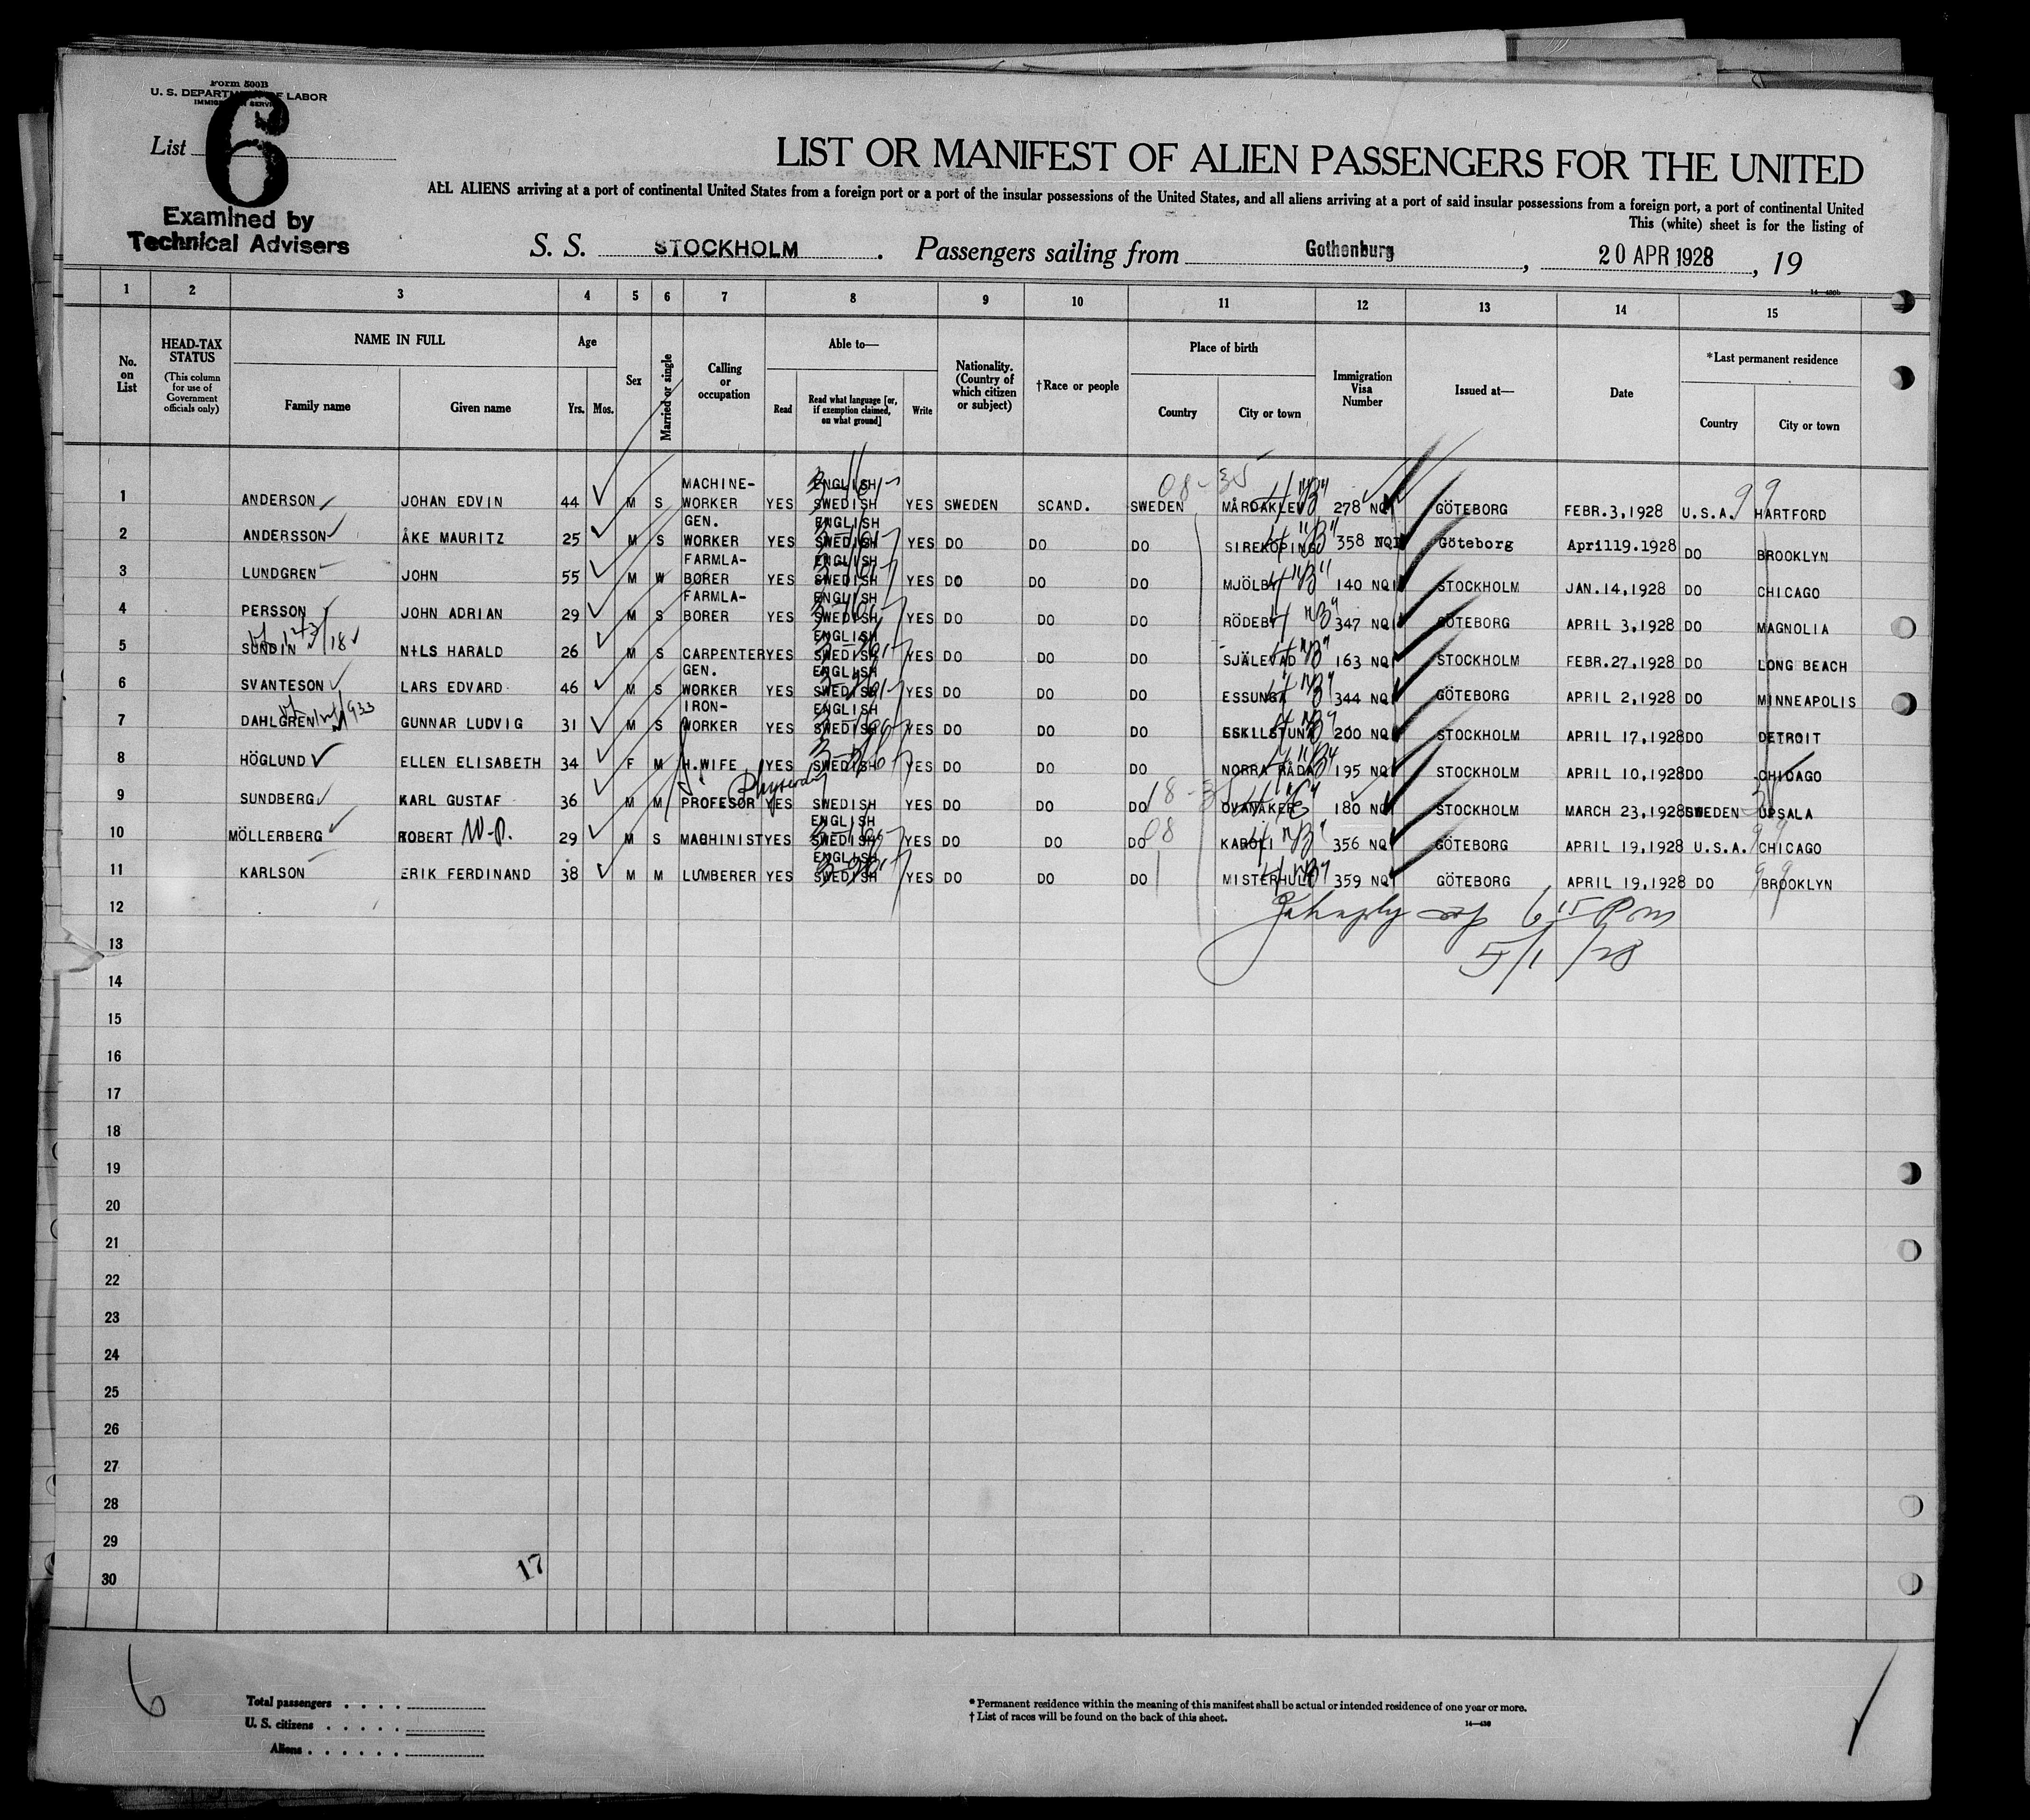 Form 500B
U. S. DEPARTMENT OF LABOR
IMMIGRATION SERVICE
List 6
Examined by
Technical Advisers
LIST OR MANIFEST OF ALIEN PASSENGERS FOR THE UNITED
ALL ALIENS arriving at a port of continental United States from a foreign port or a port of the insular possessions of the United States, and all aliens arriving at a port of said insular possessions from a foreign port, a port of continental United
This (white) sheet is for the listing of
S. S. STOCKHOLM. Passengers sailing from Gothenburg, 20 APR 1928, 19
14—430b
1 2 3 4 5 6 7 8 9 10 11 12 13 14 15
No. on List
HEAD-TAX STATUS (This column for use of Government officials only)
NAME IN FULL
Family name Given name
Age
Yrs. Mos.
Sex
Married or single
Calling or occupation
Able to—
Read
Read what language [or, if exemption claimed, on what ground]
Write
Nationality. (Country of which citizen or subject)
†Race or people
Place of birth
Country City or town
Immigration Visa Number
Issued at—
Date
*Last permanent residence
Country City or town
08-35
1 ANDERSON JOHAN EDVIN 44 M S MACHINE-WORKER YES ENGLISH SWEDISH YES SWEDEN SCAND. SWEDEN MÅRDAKLEV 278 NQ GÖTEBORG FEBR.3,1928 U.S.A. 99 HARTFORD
2 ANDERSSON ÅKE MAURITZ 25 M S GEN. WORKER YES ENGLISH SWEDISH YES DO DO DO SIREKÖPING 358 NQ Göteborg April19.1928 DO BROOKLYN
3 LUNDGREN JOHN 55 M W FARMLA-BORER YES ENGLISH SWEDISH YES DO DO DO MJÖLBY 140 NQ STOCKHOLM JAN.14,1928 DO CHICAGO
4 PERSSON JOHN ADRIAN 29 M S FARMLA-BORER YES ENGLISH SWEDISH YES DO DO DO RÖDEBY 347 NQ GÖTEBORG APRIL 3,1928 DO MAGNOLIA
5 SUNDIN NILS HARALD 26 M S CARPENTER YES ENGLISH SWEDISH YES DO DO DO SJÄLEVAD 163 NQ STOCKHOLM FEBR.27,1928 DO LONG BEACH
6 SVANTESON LARS EDVARD 46 M S GEN. WORKER YES ENGLISH SWEDISH YES DO DO DO ESSUNGA 344 NQ GÖTEBORG APRIL 2,1928 DO MINNEAPOLIS
7 DAHLGREN GUNNAR LUDVIG 31 M S IRON-WORKER YES ENGLISH SWEDISH YES DO DO DO ESKILSTUNA 200 NQ STOCKHOLM APRIL 17,1928 DO DETROIT
8 HÖGLUND ELLEN ELISABETH 34 F M H.WIFE YES SWEDISH YES DO DO DO NORRA RÅDA 195 NQ STOCKHOLM APRIL 10,1928 DO CHICAGO
9 SUNDBERG KARL GUSTAF 36 M M PROFESOR YES SWEDISH YES DO DO DO OVANÅKER 180 NQ STOCKHOLM MARCH 23,1928 SWEDEN UPSALA
10 MÖLLERBERG ROBERT W-P. 29 M S MACHINIST YES ENGLISH SWEDISH YES DO DO DO 08 KAROLI 356 NQ GÖTEBORG APRIL 19,1928 U.S.A. CHICAGO
11 KARLSON ERIK FERDINAND 38 M M LUMBERER YES ENGLISH SWEDISH YES DO DO DO MISTERHULT 359 NQ GÖTEBORG APRIL 19,1928 DO 99 BROOKLYN
12 6 15 Pm
13 5/1/28
14
15
16
17
18
19
20
21
22
23
24
25
26
27
28
29
30
17
6
Total passengers . . . .
U. S. citizens . . . . .
Aliens . . . . . .
* Permanent residence within the meaning of this manifest shall be actual or intended residence of one year or more.
† List of races will be found on the back of this sheet.
14—430